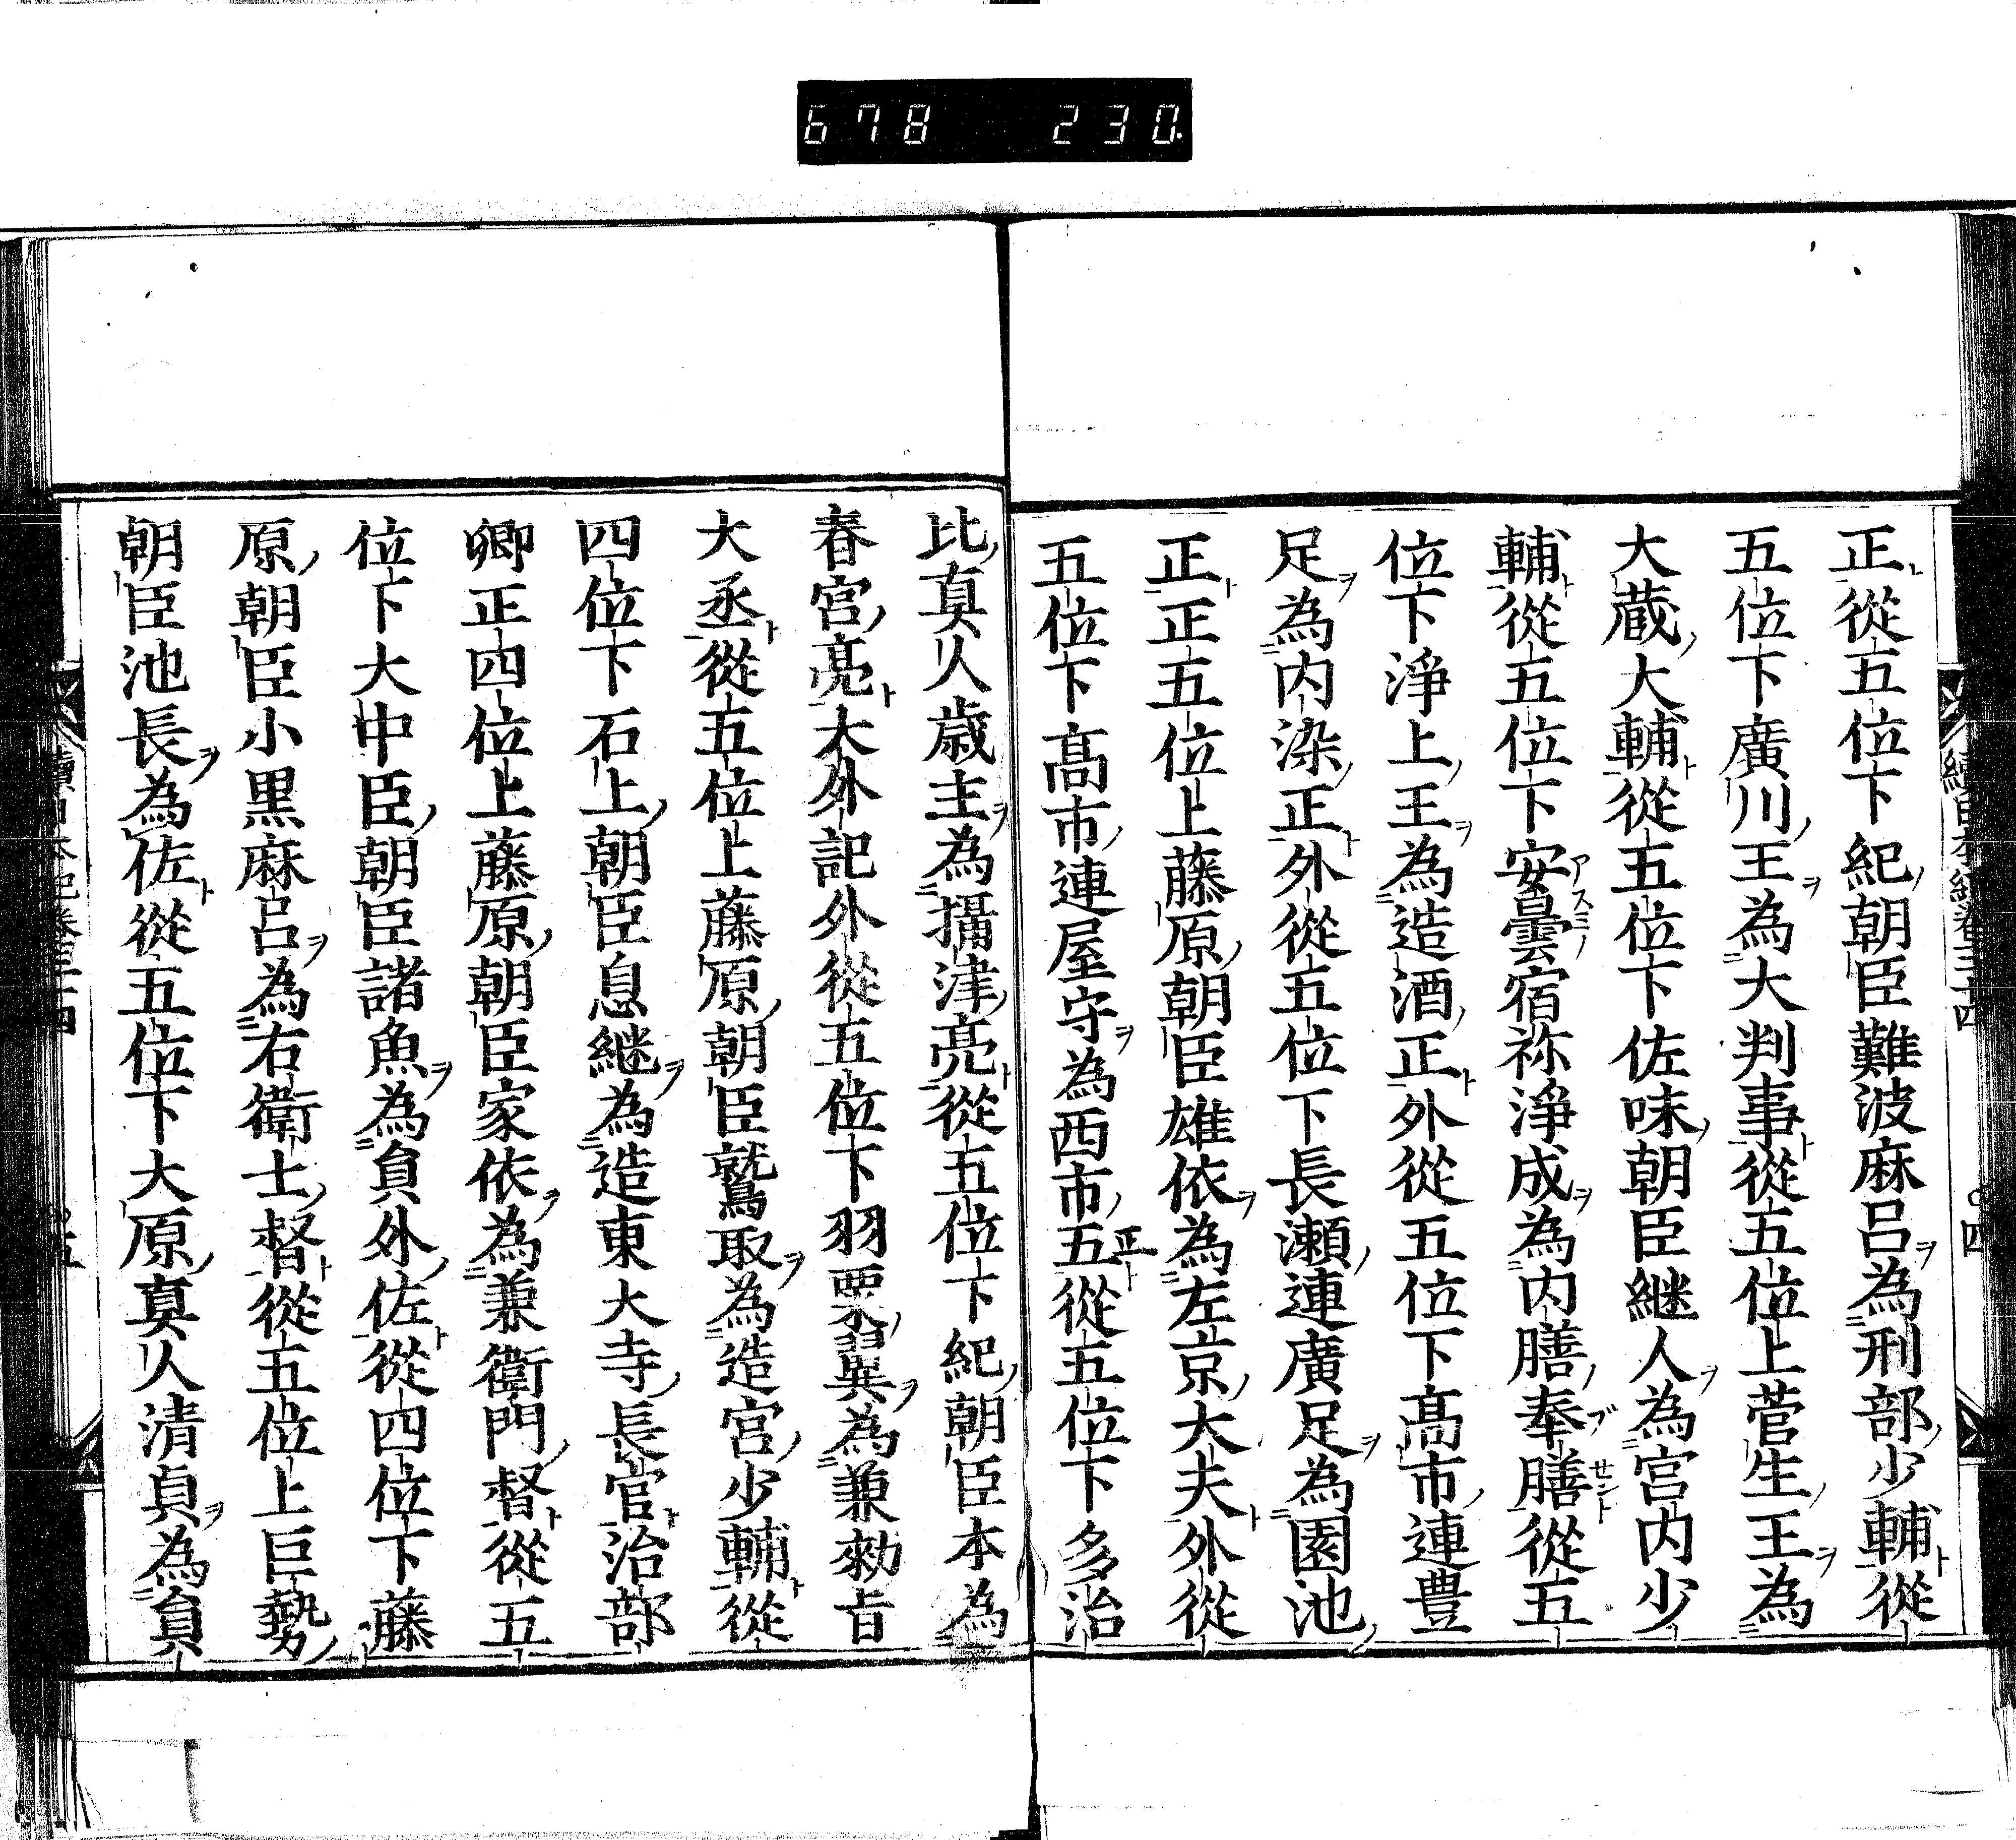 678 230
正從五位下紀朝臣難波麻呂為刑部少輔從
五位下廣川王為大判事從五位上菅生王為
大蔵大輔從五位下佐味朝臣継人為宮内少
輔從五位下安曇宿祢淨成為内膳奉膳從五
位下淨上王為造酒正外從五位下髙市連豊
足為内染正外從五位下長瀬連廣足為園池
正正五位上藤原朝臣雄依為左京大夫外從
五位下髙市連屋守為西市五正從五位下多治
比真人歳主為攝津亮從五位下紀朝臣本為
春宮亮大外記外從五位下羽栗翼為兼勅旨
大丞從五位上藤原朝臣鷲取為造宮少輔從
四位下石上朝臣息継為造東大寺長官治部
卿正四位上藤原朝臣家依為兼衛門督從五
位下大中臣朝臣諸魚為貟外佐從四位下藤
原朝臣小黒麻呂為右衛士督從五位上巨勢
朝臣池長為佐從五位下大原真人清貞為貟